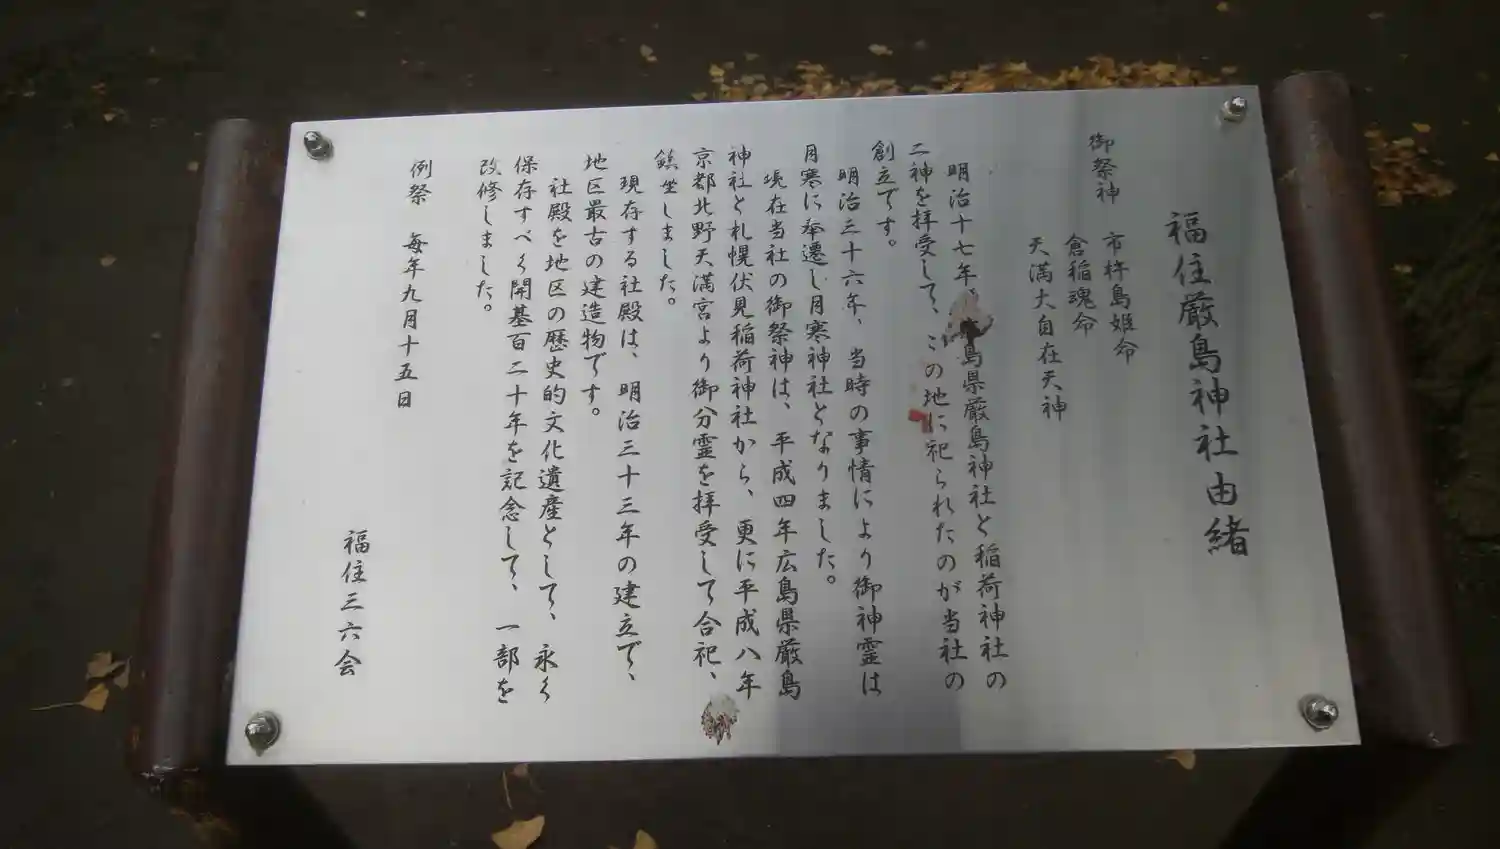 福住厳島神社由緒
御祭神 市杵島姫命
倉稲魂命
天満大自在天神
明治十七年、島県厳島神社と稲荷神社の
二神を拝受して、この地に祀られたのが当社の
創立です。
明治三十六年、当時の事情により御神霊は
月寒に奉遷し月寒神社となりました。
現在当社の御祭神は、平成四年広島県厳島
神社と札幌伏見稲荷神社から、更に平成八年
京都北野天満宮より御分霊を拝受して合祀、
鎮坐しました。
現存する社殿は、明治三十三年の建立で、
地区最古の建造物です。
社殿を地区の歴史的文化遺産として、永く
保存すべく開基百二十年を記念して、一部を
改修しました。
例祭 毎年九月十五日
福住三六会